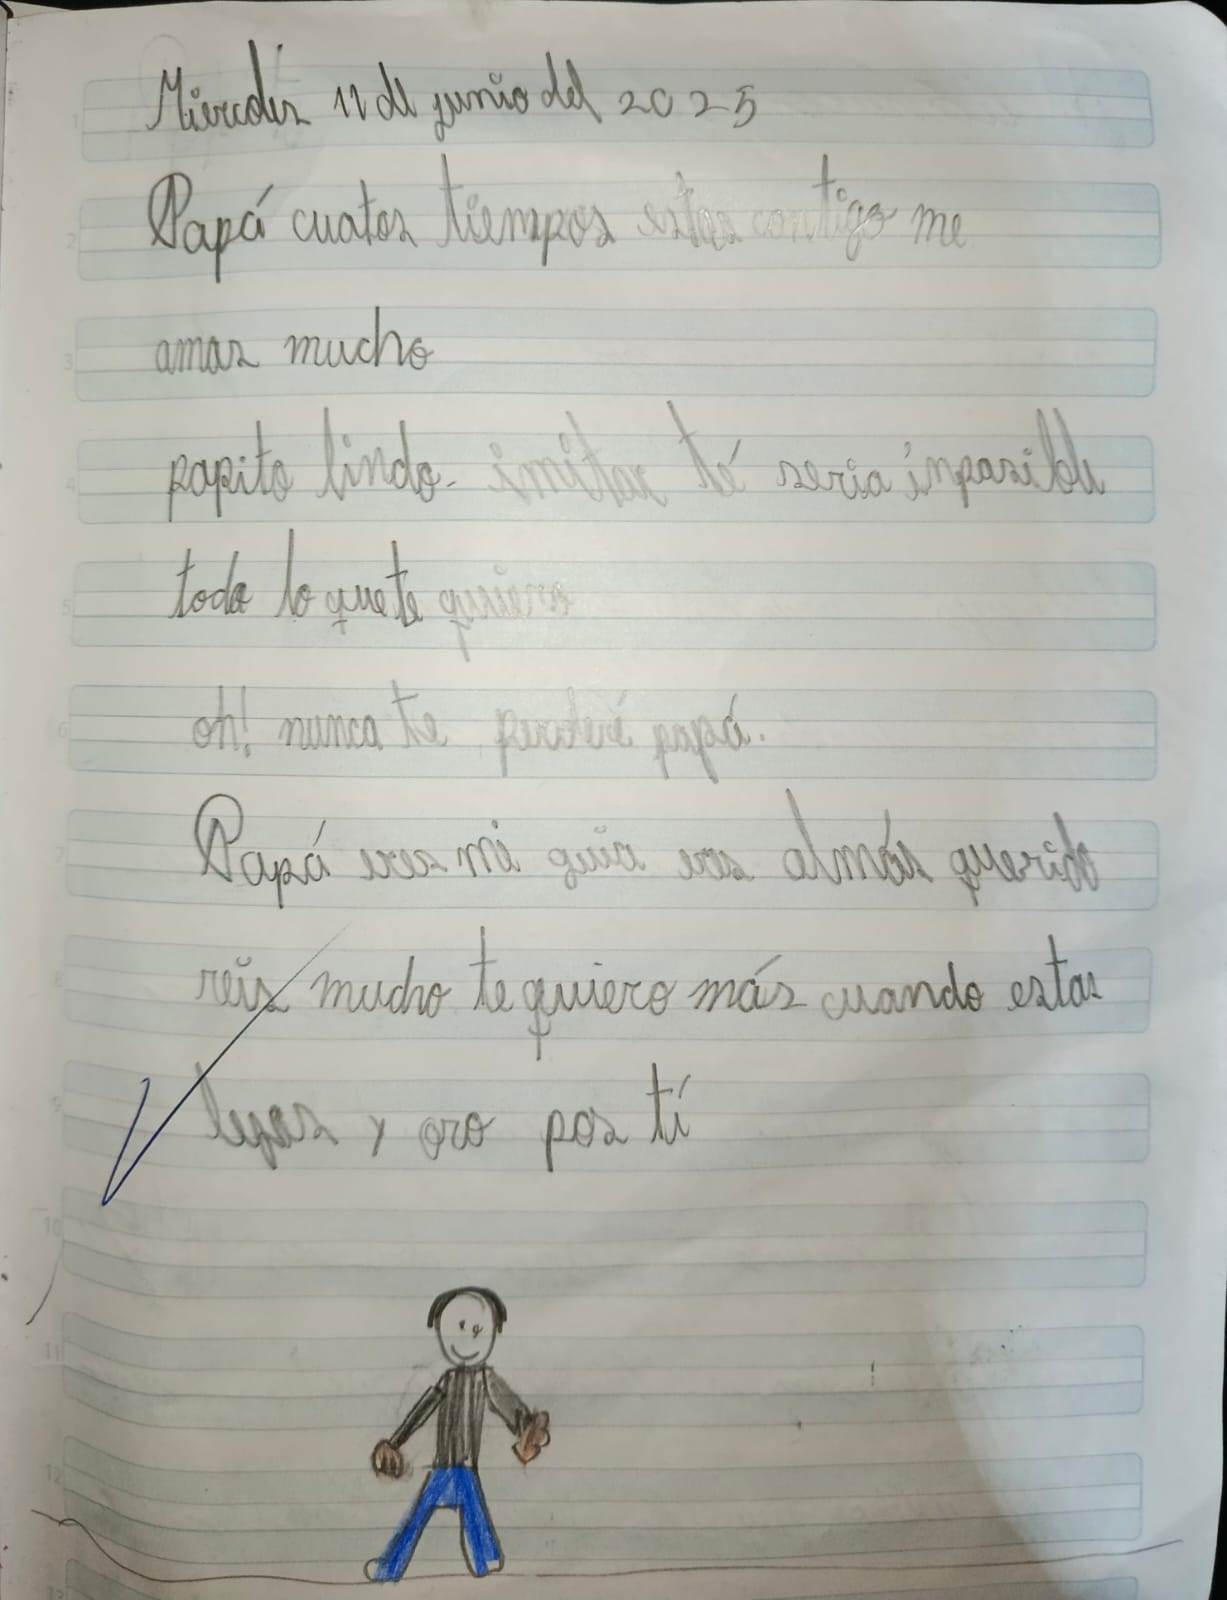 Miercoles 11 de junio del 2025
Papá cuatos tiempos estas contigo me
amas mucho
papito lindo. imitar té seria imposible
todo lo que te quiero
oh! nunca te perderé papá.
Papá eres mi guia eres el más querido
reis mucho te quiero más cuando estas
lejos y oro pos tí